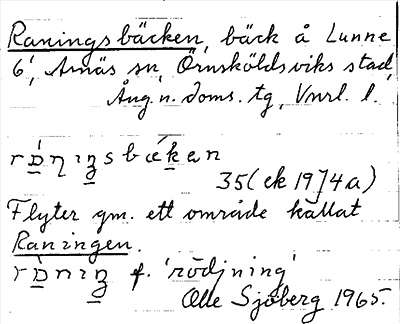 Raningsbäcken, bäck å Lunne
6¹, Arnäs sn, Örnsköldsviks stad,
Ång.n. doms. tg, Vnrl. l.
35 (ek 1974a)
Flyter gm. ett område kallat
Raningen.
f. 'rödjning'
Olle Sjöberg 1965.